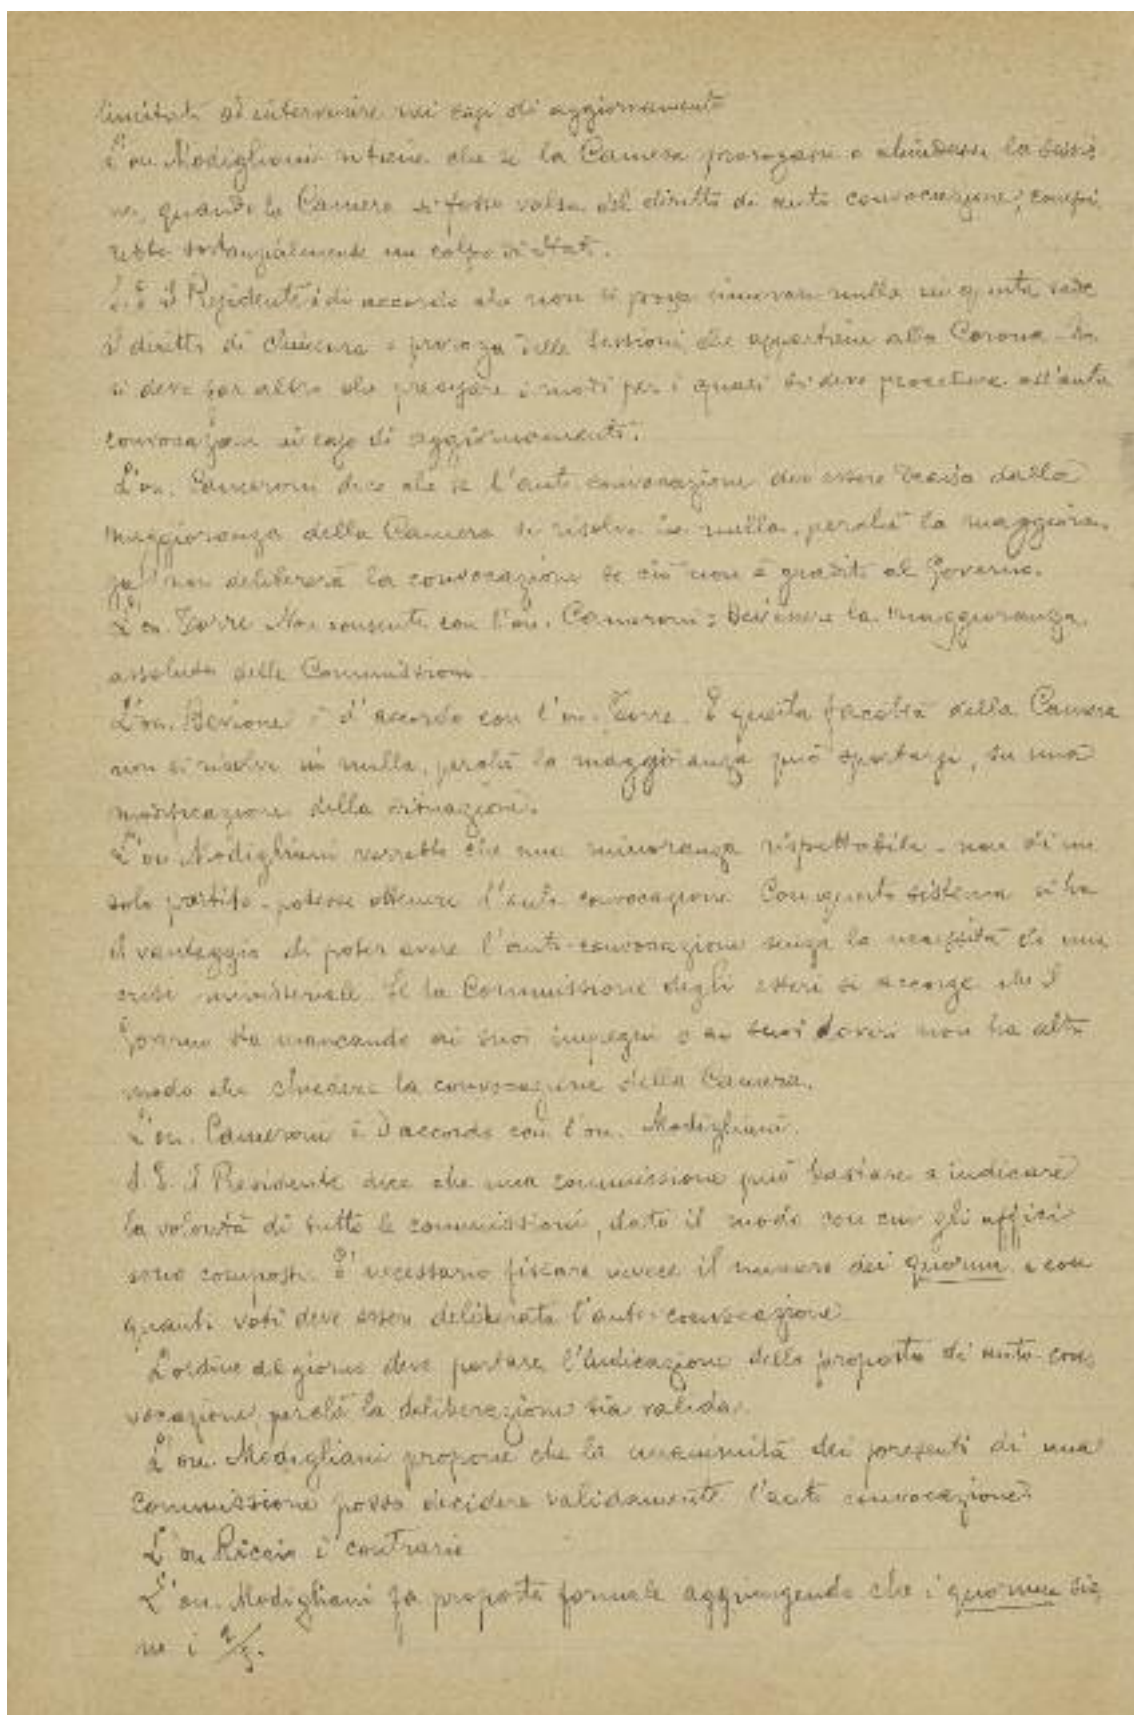 limitati ad intervenire nei casi di aggiornamento
L'on. Modigliani ritiene che se la Camera prorogasse o chiudesse la sessio
ne, quando la Camera si fosse valsa del diritto di auto convocazione, compi
rebbe sostanzialmente un colpo di Stato.
S. E. il Presidente è di accordo che non si possa innovare nulla in questa sede
il diritto di chiusura e proroga delle Sessioni che appartiene alla Corona. Non
si deve far altro che precisare i modi per i quali si deve procedere all'auto
convocazione in caso di aggiornamento.
L'on. Cameroni dice che se l'auto convocazione dev'essere decisa dalla
maggioranza della Camera si risolve in nulla, perchè la maggioran
za non delibererà la convocazione se ciò non è gradito al Governo.
L'on. Torre Non consente con l'on. Cameroni: Dev'essere la maggioranza
assoluta delle Commissioni.
L'on. Bevione è d'accordo con l'on. Torre. E questa facoltà della Camera
non si risolve in nulla, perchè la maggioranza può spostarsi, su una
modificazione della situazione.
L'on. Modigliani vorrebbe che una minoranza rispettabile - non di un
solo partito - potesse ottenere l'auto convocazione. Con questo sistema si ha
il vantaggio di poter avere l'auto-convocazione senza la necessità di una
crisi ministeriale. Se la Commissione degli esteri si accorge che il
Governo sta mancando ai suoi impegni o ai suoi doveri non ha altro
modo che chiedere la convocazione della Camera.
L'on. Cameroni è d'accordo con l'on. Modigliani.
S. E. il Presidente dice che una commissione può bastare a indicare
la volontà di tutte le commissioni, dato il modo con cui gli uffici
sono composti. È necessario fissare invece il numero dei quorum e con
quanti voti deve essere deliberata l'auto-convocazione.
L'ordine del giorno deve portare l'indicazione della proposta di auto con
vocazione, perchè la deliberazione sia valida.
L'on. Modigliani propone che la unanimità dei presenti di una
Commissione possa decidere validamente l'auto convocazione.
L'on Riccio è contrario
L'on. Modigliani fa proposta formale aggiungendo che i quorum sia
no i 2/3.